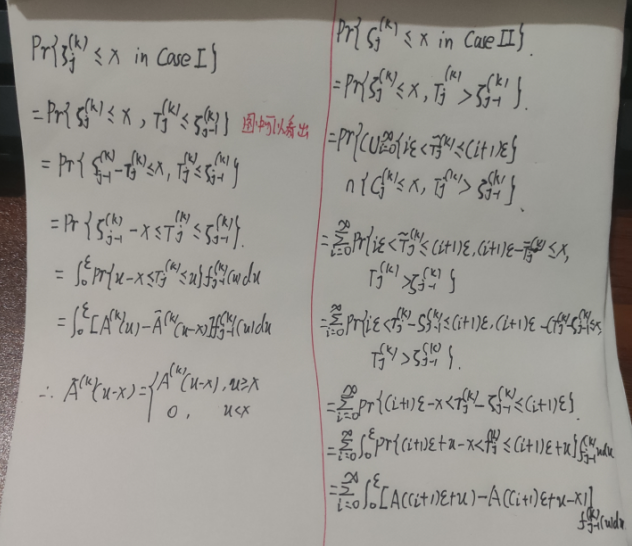 Pr{ζ_j^(k) ≤ x in Case I}
= Pr{ζ_j^(k) ≤ x, T_j^(k) ≤ ζ_{j-1}^(k)} 图中可以看出
= Pr{ζ_{j-1}^(k) - T_j^(k) ≤ x, T_j^(k) ≤ ζ_{j-1}^(k)}
= Pr{ζ_{j-1}^(k) - x ≤ T_j^(k) ≤ ζ_{j-1}^(k)}.
= ∫_0^ε Pr{u-x ≤ T_j^(k) ≤ u} f_{j-1}^(k)(u)du
= ∫_0^ε [A^(k)(u) - Ā^(k)(u-x)] f_{j-1}^(k)(u)du
∴ Ā^(k)(u-x) = { A^(k)(u-x), u≥x
0, u<x
Pr{ζ_j^(k) ≤ x in Case II}.
= Pr{ζ_j^(k) ≤ x, T_j^(k) > ζ_{j-1}^(k)}.
= Pr{(∪_{i=0}^∞ {iε < T̃_j^(k) ≤ (i+1)ε}
∩ {ζ_j^(k) ≤ x, T_j^(k) > ζ_{j-1}^(k)}.
= Σ_{i=0}^∞ Pr{iε < T̃_j^(k) ≤ (i+1)ε, (i+1)ε - T̃_j^(k) ≤ x,
T_j^(k) > ζ_{j-1}^(k)}
= Σ_{i=0}^∞ Pr{iε < T_j^(k) - ζ_{j-1}^(k) ≤ (i+1)ε, (i+1)ε - (T_j^(k) - ζ_{j-1}^(k)) ≤ x,
T_j^(k) > ζ_{j-1}^(k)}.
= Σ_{i=0}^∞ Pr{(i+1)ε - x < T_j^(k) - ζ_{j-1}^(k) ≤ (i+1)ε}.
= Σ_{i=0}^∞ ∫_0^ε Pr{(i+1)ε + u - x < T_j^(k) ≤ (i+1)ε + u} f_{j-1}^(k)(u)du
= Σ_{i=0}^∞ ∫_0^ε [A((i+1)ε + u) - A((i+1)ε + u - x)]
f_{j-1}^(k)(u)du